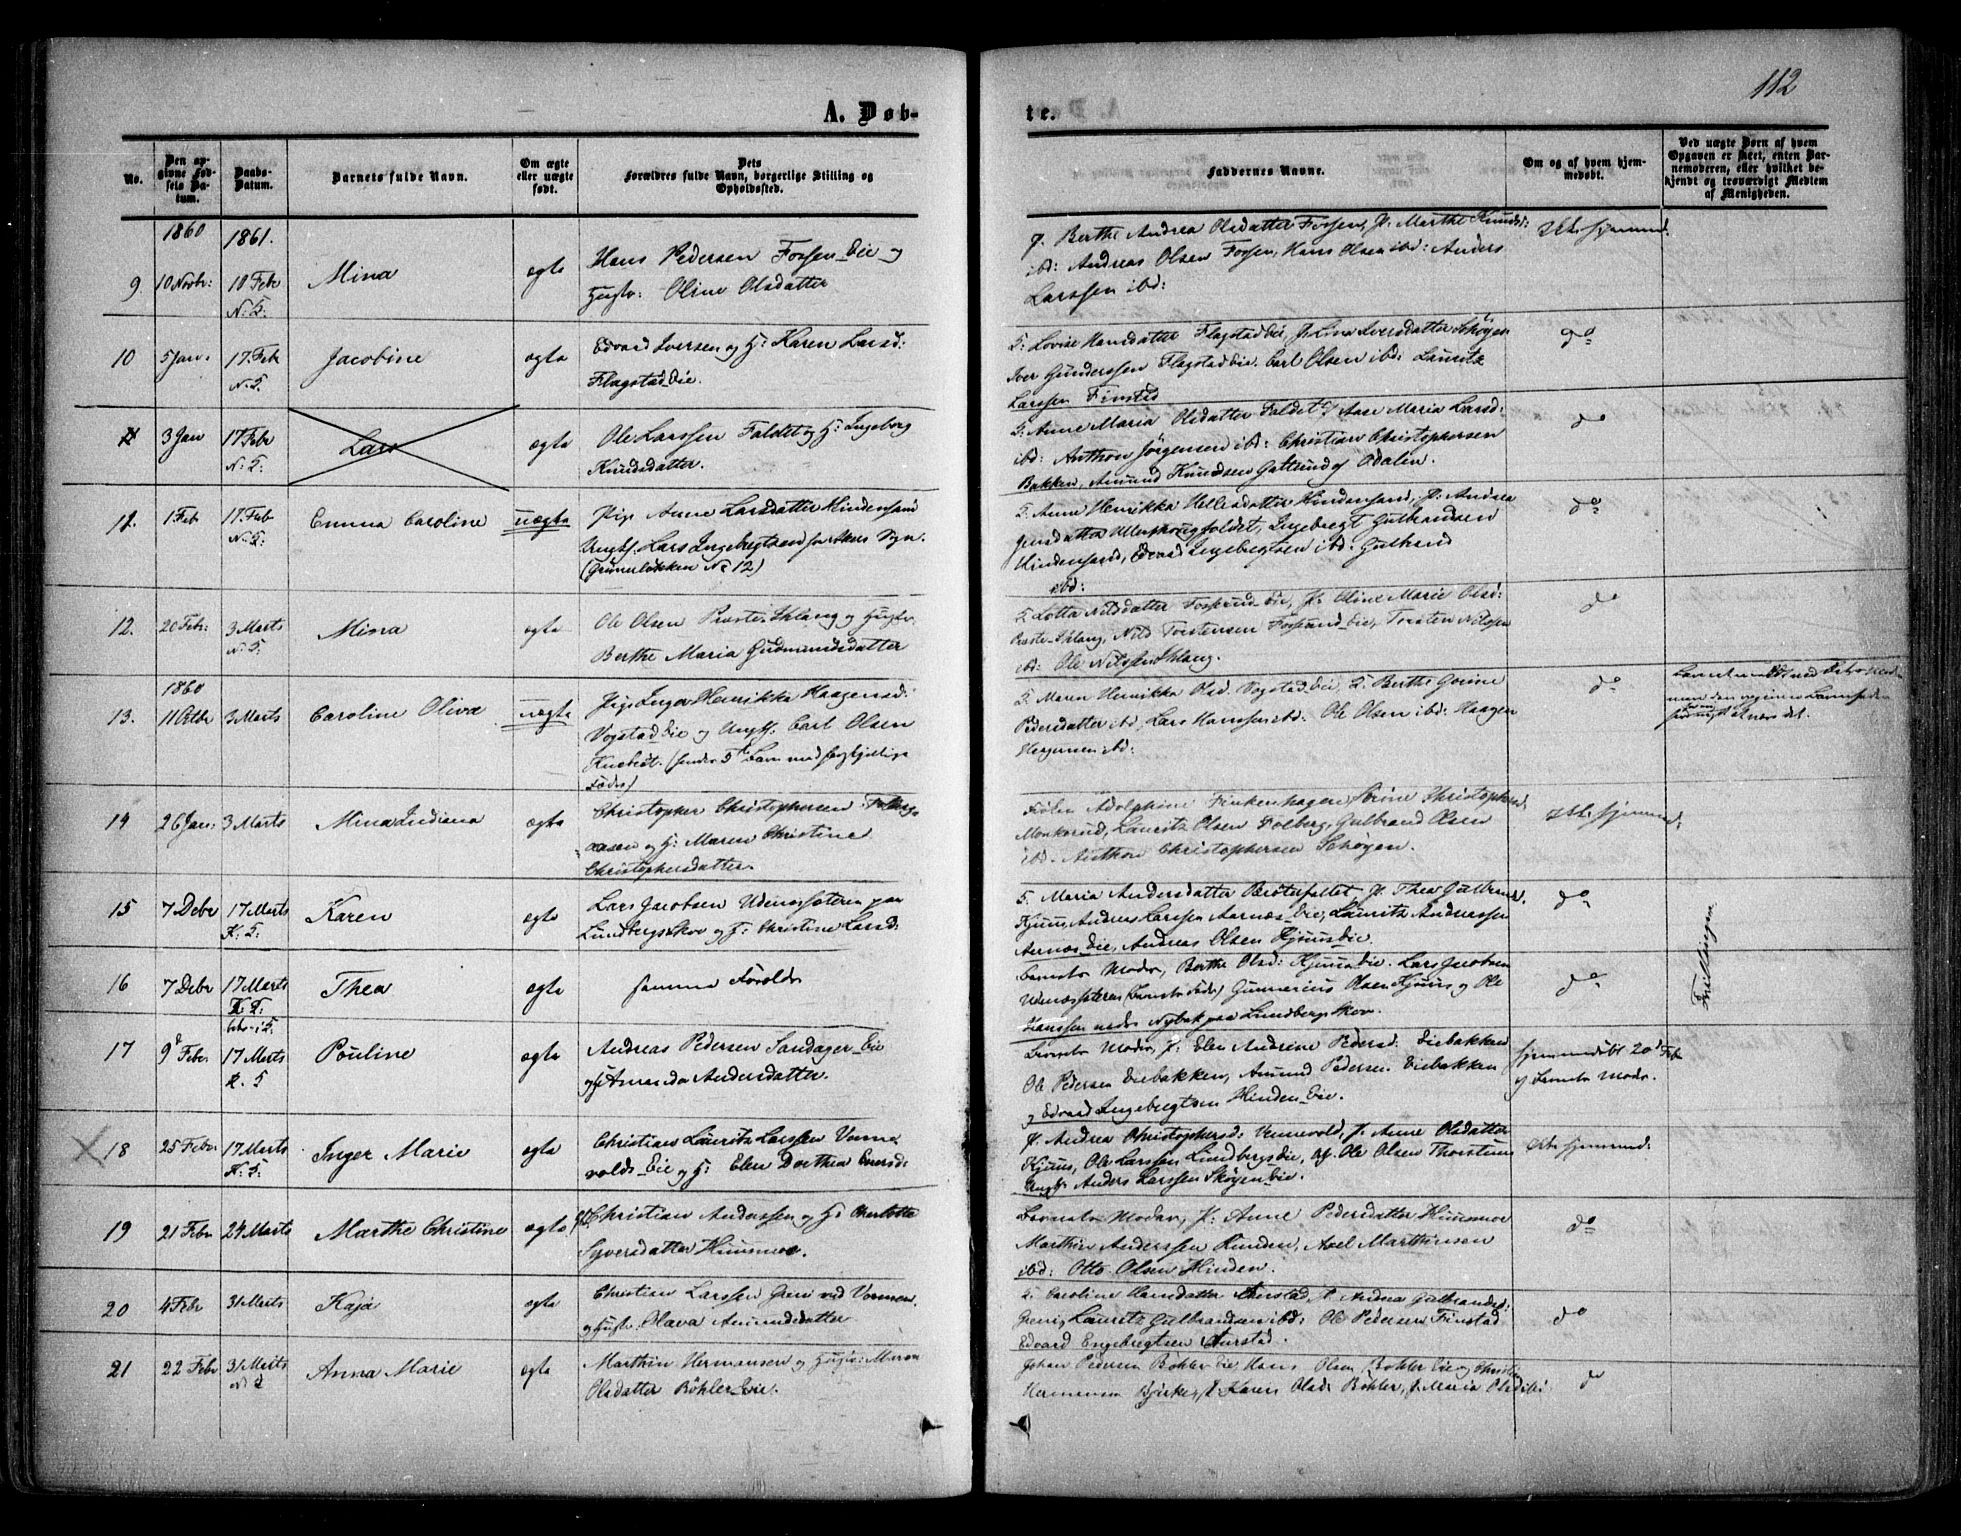 112
A. Døb-
te.
No.
Den op-
givne Fød-
sels Da-
tum.
Daabs-
Datum.
Barnets fulde Navn.
Om ægte
eller uægte
født.
Dets
Forældres fulde Navn, borgerlige Stilling og
Opholdssted.
Faddernes Navne.
Om og af hvem hjem-
medøbt.
Ved uægte Børn af hvem
Opgaven er skeet, enten Bar-
nemoderen, eller hvilket be-
kjendt og troværdigt Medlem
af Menigheden.
1860
1861.
9. 10 Novbr: 10 Febr Mina ægte
Hans Pedersen Fossen Eie og
Hust: Oline Olsdatter
J. Berthe Andrea Olsdatter Fossen, J. Marthe Knuds:
ibd: Andreas Olsen Fossen, Hans Olsen ibd: Anders
Larssen ibd:
10 5 Jan: 17 Feb Jacobine ægte
Edvard Iversen og H: Karen Larsd:
Flagstad Eie.
Lovise Hansdatter Flagstad Eie, J. Lina Iversdatter Skøyen
Iver Gunderssen Flagstad Eie. Carl Olsen ibd: Lauritz
Larssen Finstad
do
3 Jan 17 Febr Lars ægte
Ole Larssen Faldet og H: Ingeborg
Knudsdatter.
Anne Maria Olsdatter Faldet J Aase Maria Larsd:
ibd: Anthon Jørgensen ibd: Christian Christophersen
Bakken, Amund Knudsen Odalen.
do
1 Feb 17 Feb Emma Caroline uægte
Pige Anne Larsdatter Hindensand
Ungk. Lars Ingebregtsen for Akers Sogn.
(Grünerløkken No 12)
Anne Henrikka Hellesdatter Hindensand, J. Andrea
Jensdatter Ullershougfaldet, Ingebregt Gulbrandsen
Hindensand, Edvard Ingebregtsen ibd. Gulbrand
ibd:
do
12. 20 Febr: 3 Marts Mina ægte
Ole Olsen Præste Ihlang og Hustr.
Berthe Maria Gudmundsdatter
Lotta Nilsdatter Fosserud Eie, J: Oline Marie Olsd:
Præste Ihlang, Nils Torstensen Fosserud Eie, Torsten Nilssen
ibd: Ole Nilssen Ihlang.
do
1860
13. 11 Octbr 3 Marts Caroline Oliva uægte
Pige Inger Henrikka Haagensd:
Vogstad Eie og Ungk. Carl Olsen
(hendes 5te Barn med forskjellige
Fædre)
Maren Henrikka Olsd. Vogstad Eie, Berthe Gurine
Pedersdatter ibd, Lars Hanssen ibd. Ole Olsen ibd: Haagen
ibd:
do
14 26 Jan: 3 Marts Mina Indiana ægte
Christopher Christophersen
aasen og H: Maren Christine
Christophersdatter.
Frøken Adolphine Finkenhagen, Sirine Christophersd.
Monkerud, Lauritz Olsen Tolberg, Gulbrand Olsen
ibd. Anthon Christophersen Schøyen.
15 7 Debr 17 Marts Karen ægte
Lars Jacobsen Udenæsseteren paa
Lundbergs Skov og H: Christine Larsd:
Maria Andersdatter Brøterfaldet, J. Thea Gulbrands.
Kjuus, Andreas Larssen Aarnæs Eie, Lauritz Andreassen
Aarnæs Eie, Andreas Olsen Kjuus Eie.
do
Tvillinger
16 7 Debr 17 Marts Thea ægte
samme Foreldre
Barnets Moder, Berthe Olsd: Kjuus Eie. Lars Jacobsen
Udenæsseteren (Barnets Fader) Gunnerius Olsen Kjuus og Ole
Hanssen nedre Nybak paa Lundberg Skov.
do
17 9 Feb. 17 Marts Pauline ægte
Andreas Pedersen Sandager Eie
og H Amanda Andersdatter.
Barnets Moder, J: Elen Andrine Pedersd. Eiebakken
Ole Pedersen Eiebakken, Amund Pedersen Eiebakken
og Edvard Ingebregtsen Hinden Eie.
hjemmedøbt 20d Feb
af Barnets Moder.
18 25 Febr. 17 Marts Inger Marie ægte
Christian Lauritz Larssen Venne-
volds Eie og H: Elen Dorthea Eversd:
J. Andrea Christophersd: Vennevold, J. Anne Olsdatter
Kjuus, Ole Larssen Lundbergs Eie, Ole Olsen Thorstuen
Ungk. Anders Larssen Skøyen Eie.
19 21 Febr 24 Marts Marthe Christine ægte
Christian Anderssen og H: Charlotte
Syversdatter Huusmoe.
Barnets Moder, J: Anne Pedersdatter Huusmoe
Marthin Anderssen Hinden, Axel Marthinsen
ibd: Otto Olsen Hinden.
do
20 4 Febr 31 Marts Kaja ægte
Christian Larssen Grue ved Vormen.
og Hustr. Olava Amundsdatter
Caroline Hansdatter Aurstad, J Andrea Gulbrandsd:
Lauritz Gulbrandsen ibd: Ole Pedersen Finstad
Edvard Engebregtsen Aurstad.
do
21 22 Febr 31 Marts Anna Marie ægte
Marthin Hermansen og Hustr: Maren
Olsdatter Bøhler Eie.
Johan Pedersen Bøhler Eie, Hans Olsen Bøhler Eie og Christian
Hermansen Bjerke, J. Karen Olsd: Bøhler, J. Maria Olsd ibd
do